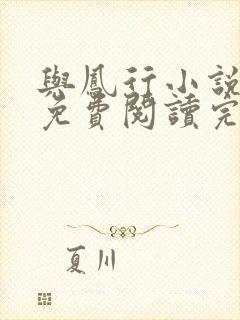 與鳳行小說
免費閱讀完
夏川